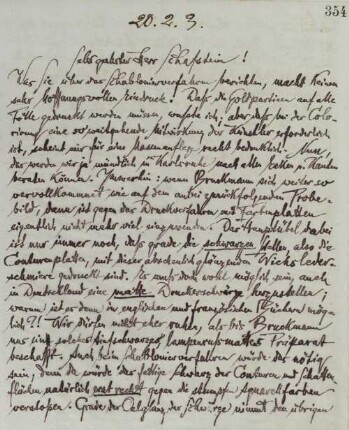 354
20. 2. 3.
Sehr geehrter Herr Schafstein!
Was Sie über das Schablonierverfahren berichten, macht keinen
sehr hoffnungsvollen Eindruck! Daß die Goldpartieen auf alle
Fälle gedruckt werden müssen, wußte ich; aber daß bei der Colo-
rierung eine so weitgehende Mitwirkung der Künstler erforderlich
ist, scheint mir für eine Massenauflage recht bedenklich. Nun,
darüber werden wir ja mündlich in Karlsruhe nach allen Ecken u. Kanten
beraten können. Immerhin: wenn Bruckmann sich weiter so
vervollkommnet wie auf dem anbei zurückfolgenden Probe-
bild, dann ist gegen das Druckverfahren mit Farbenplatten
eigentlich nicht mehr viel einzuwenden. Der Hauptübel dabei
ist nur immer noch, daß grade die schwarzen Stellen, also die
Conturenplatten, mit dieser abscheulich glänzenden Wichsleder-
schmiere gedruckt sind. Es muß doch wohl möglich sein, auch
in Deutschland eine matte Druckerschwärze herzustellen;
warum ist es denn in englischen und französischen Büchern mög-
lich?! Wir dürfen nicht eher ruhen, als bis Bruckmann
uns ein solches tiefschwarzes lampenrußmattes Präparat
beschafft. Auch beim Schablonierverfahren würde das nötig
sein, denn da würde der fettige Schwarz der Conturen und Schatten-
flächen natürlich erst recht gegen die stumpfen Aquarellfarben
verstoßen. Grade der Oelglanz der Schwärze nimmt den übrigen